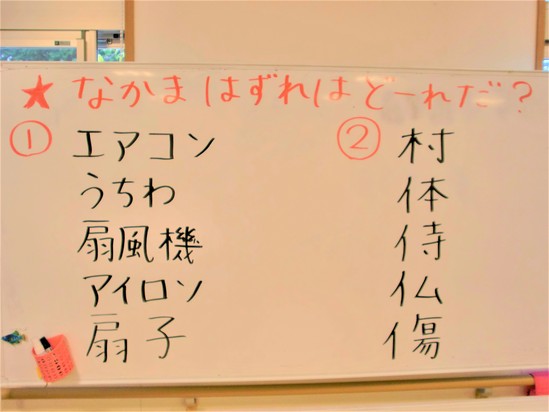 ★ なかまはずれはどーれだ？
① エアコン
うちわ
扇風機
アイロン
扇子
②村
体
侍
仏
傷